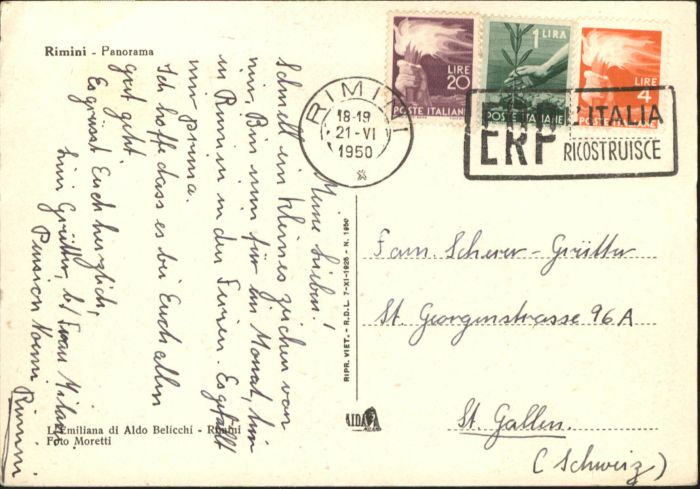 Rimini - Panorama
LIRE
20
POSTE ITALIANE
1 LIRA
POSTE ITALIANE
LIRE
4
POSTE ITALIANE
RIMINI
18-19
21-VI
1950
L'ITALIA
ERP RICOSTRUISCE
Meine lieben!
Schnell ein kleines zeichen von
mir, Bin nun für ein Monat, hier
in Rimini in den Ferien. Es gefällt
mir prima.
Ich hoffe dass es bei Euch allen
gut geht.
Es grüsst Euch herzlich,
Grütter, b/
Pension Nonni
Rimini
Fam. Scherer-Grütter
St. Georgenstrasse 96A
St. Gallen.
(Schweiz)
RIPR. VIET. - R.D.L. 7-XI-1925 - N. 1950
AIDA
MILANO
L'Emiliana di Aldo Belicchi - Rimini
Foto Moretti